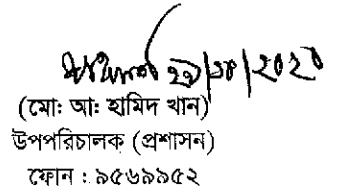 ২১/১০/২০২০
(মোঃ আঃ হামিদ খান)
উপপরিচালক (প্রশাসন)
ফোন : ৯৫৬৯৯৫২